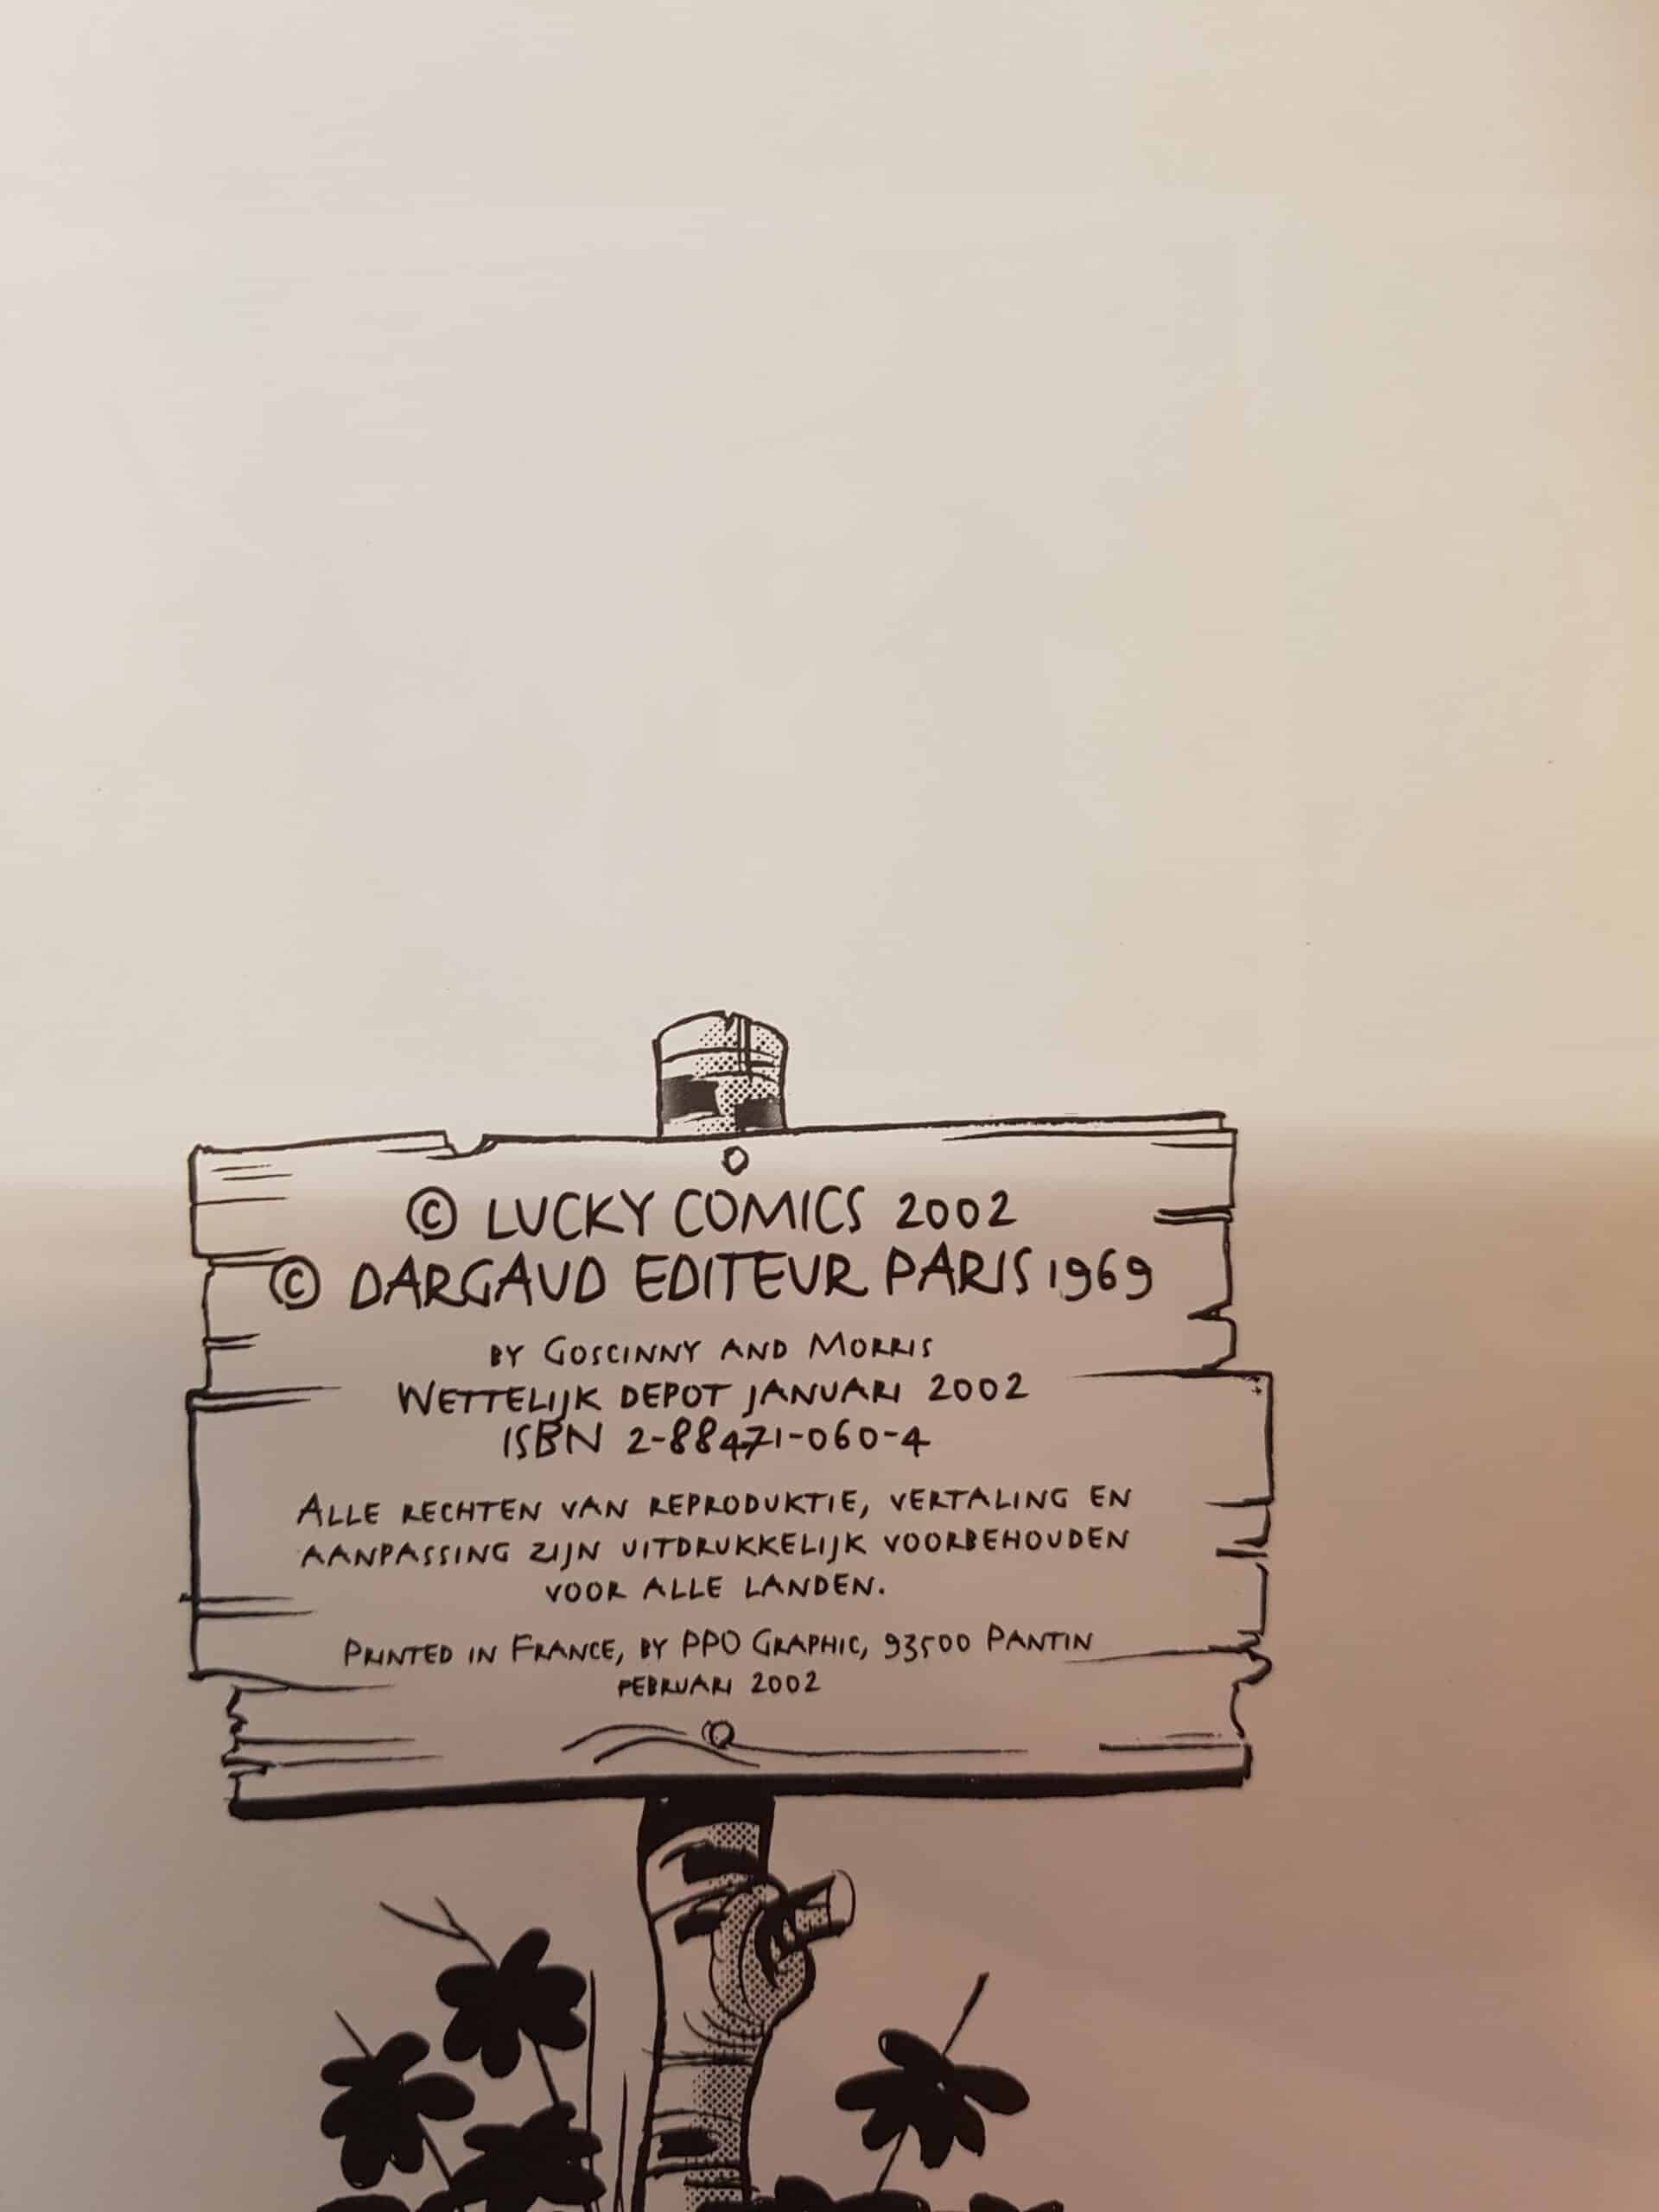 © LUCKY COMICS 2002
© DARGAUD EDITEUR PARIS 1969
BY GOSCINNY AND MORRIS
WETTELIJK DEPOT JANUARI 2002
ISBN 2-88471-060-4
ALLE RECHTEN VAN REPRODUKTIE, VERTALING EN
AANPASSING ZIJN UITDRUKKELIJK VOORBEHOUDEN
VOOR ALLE LANDEN.
PRINTED IN FRANCE, BY PPO GRAPHIC, 93500 PANTIN
FEBRUARI 2002